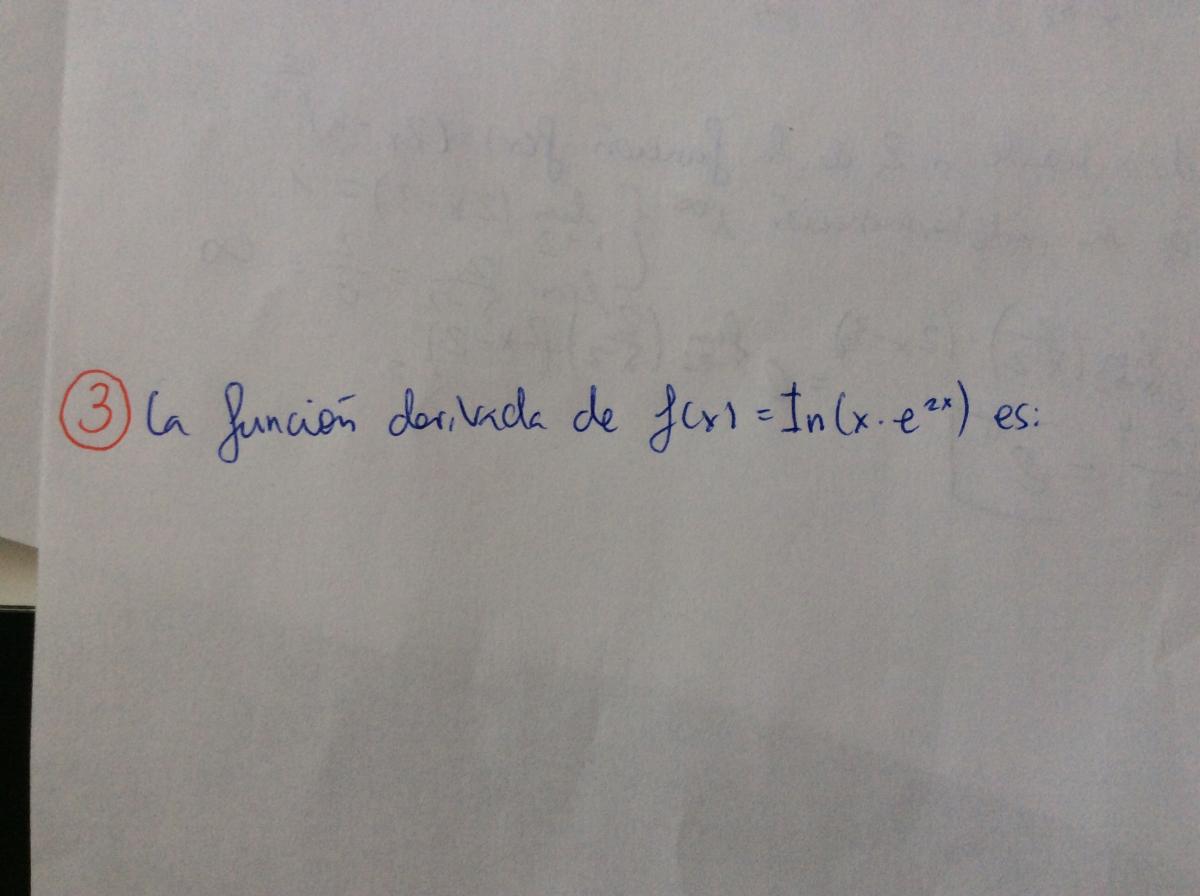 ③ La función derivada de f(x) = In(x·e²ˣ) es: